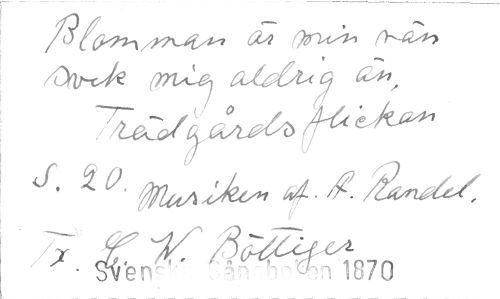 Blomman är min vän
svek mig aldrig än,
Trädgårdsflickan
S. 20. Musiken af. A. Randel.
Tx. C. W. Böttiger
Svenska Sångboken 1870